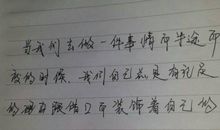 当我们去做一件事情而半途而
废的时候，我们自己总是有说辞
的 自己而装饰着自己